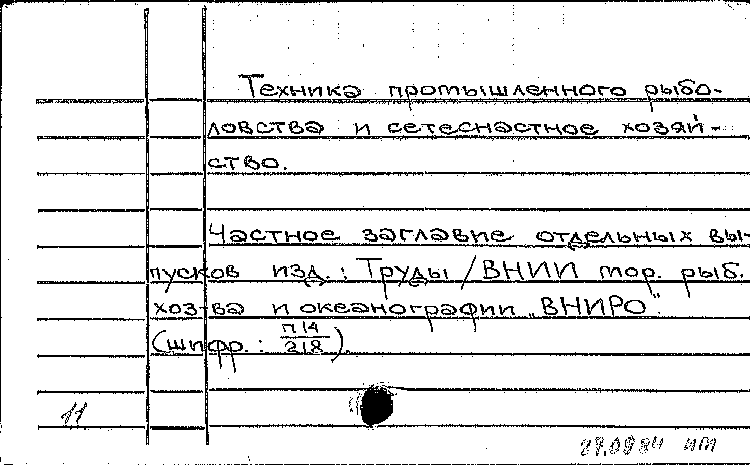 Техника промышленного рыбо-
ловства и сетеснастное хозяй-
ство.
Частное заглавие отдельных вы-
пусков изд.: Труды / ВНИИ мор. рыб.
хоз-ва и океанографии „ВНИРО".
(шифр.: П14/218).
11
27.09.84 ИТ